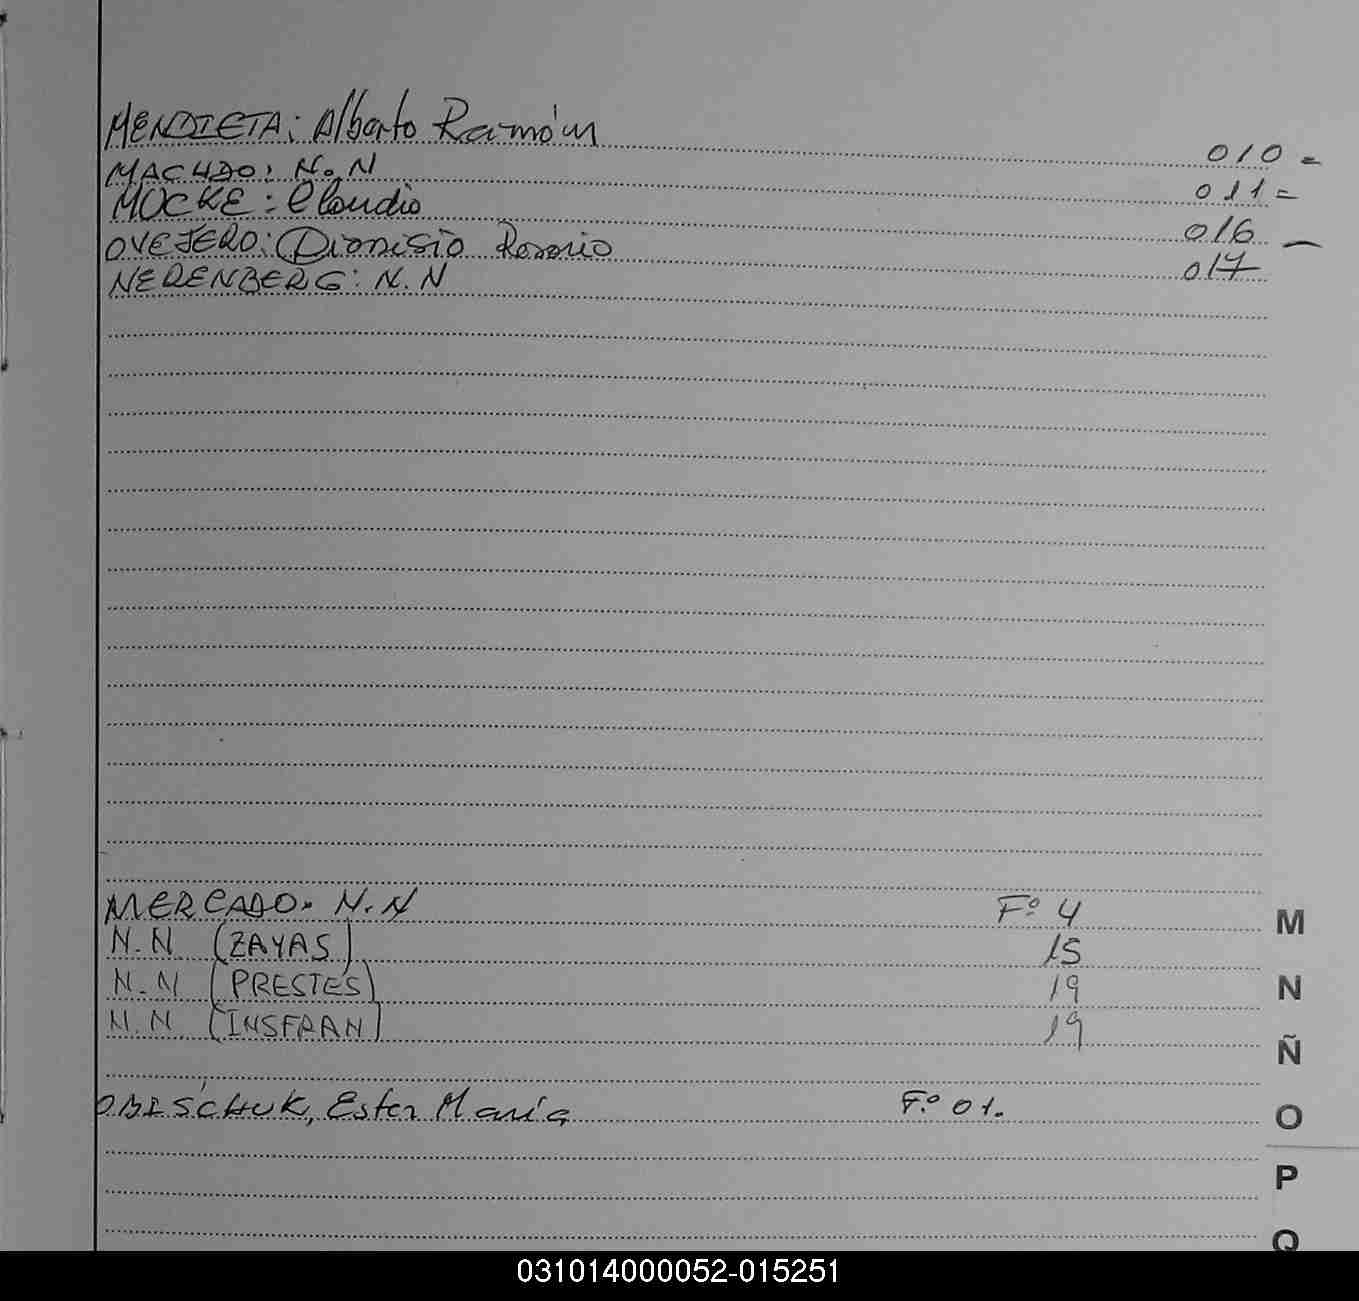 MENDIETA: Alberto Ramón 010 =
MACHDO: N.N 011 =
MOCKE: Claudio 016 —
OVEJERO: Dionisio Rosario 017
NERENBERG: N.N
MERCADO. N.N Fº 4
N.N (ZAYAS) 15
N.N (PRESTES) 19
N.N (INSFRAN) 19
OBISCHUK, Ester María Fº 01.
M
N
Ñ
O
P
Q
031014000052-015251